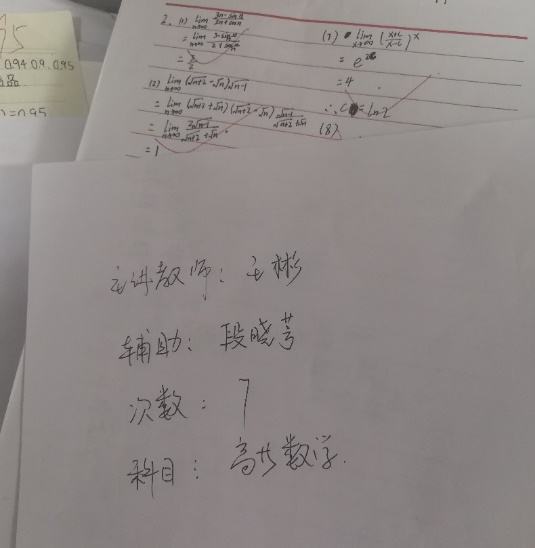 95
0.94 0.9. 0.95
品
)=0.95
2. (1) lim n→∞ (3n-sinn)/(2n+cosn)
= lim n→∞
= 3/2
(2) lim n→∞ (√n+2 -√n)√n-1
= lim n→∞ (√n+2 +√n)(√n+2 -√n) √n-1/(√n+2 +√n)
= lim n→∞ 2√n-1/(√n+2 +√n)
=1
(7) lim x→∞ ((x+c)/(x-c))^x
= e^2c
=4
∴c=ln2
(8)
主讲教师：王彬
辅助：段晓
次数：7
科目：高等数学.